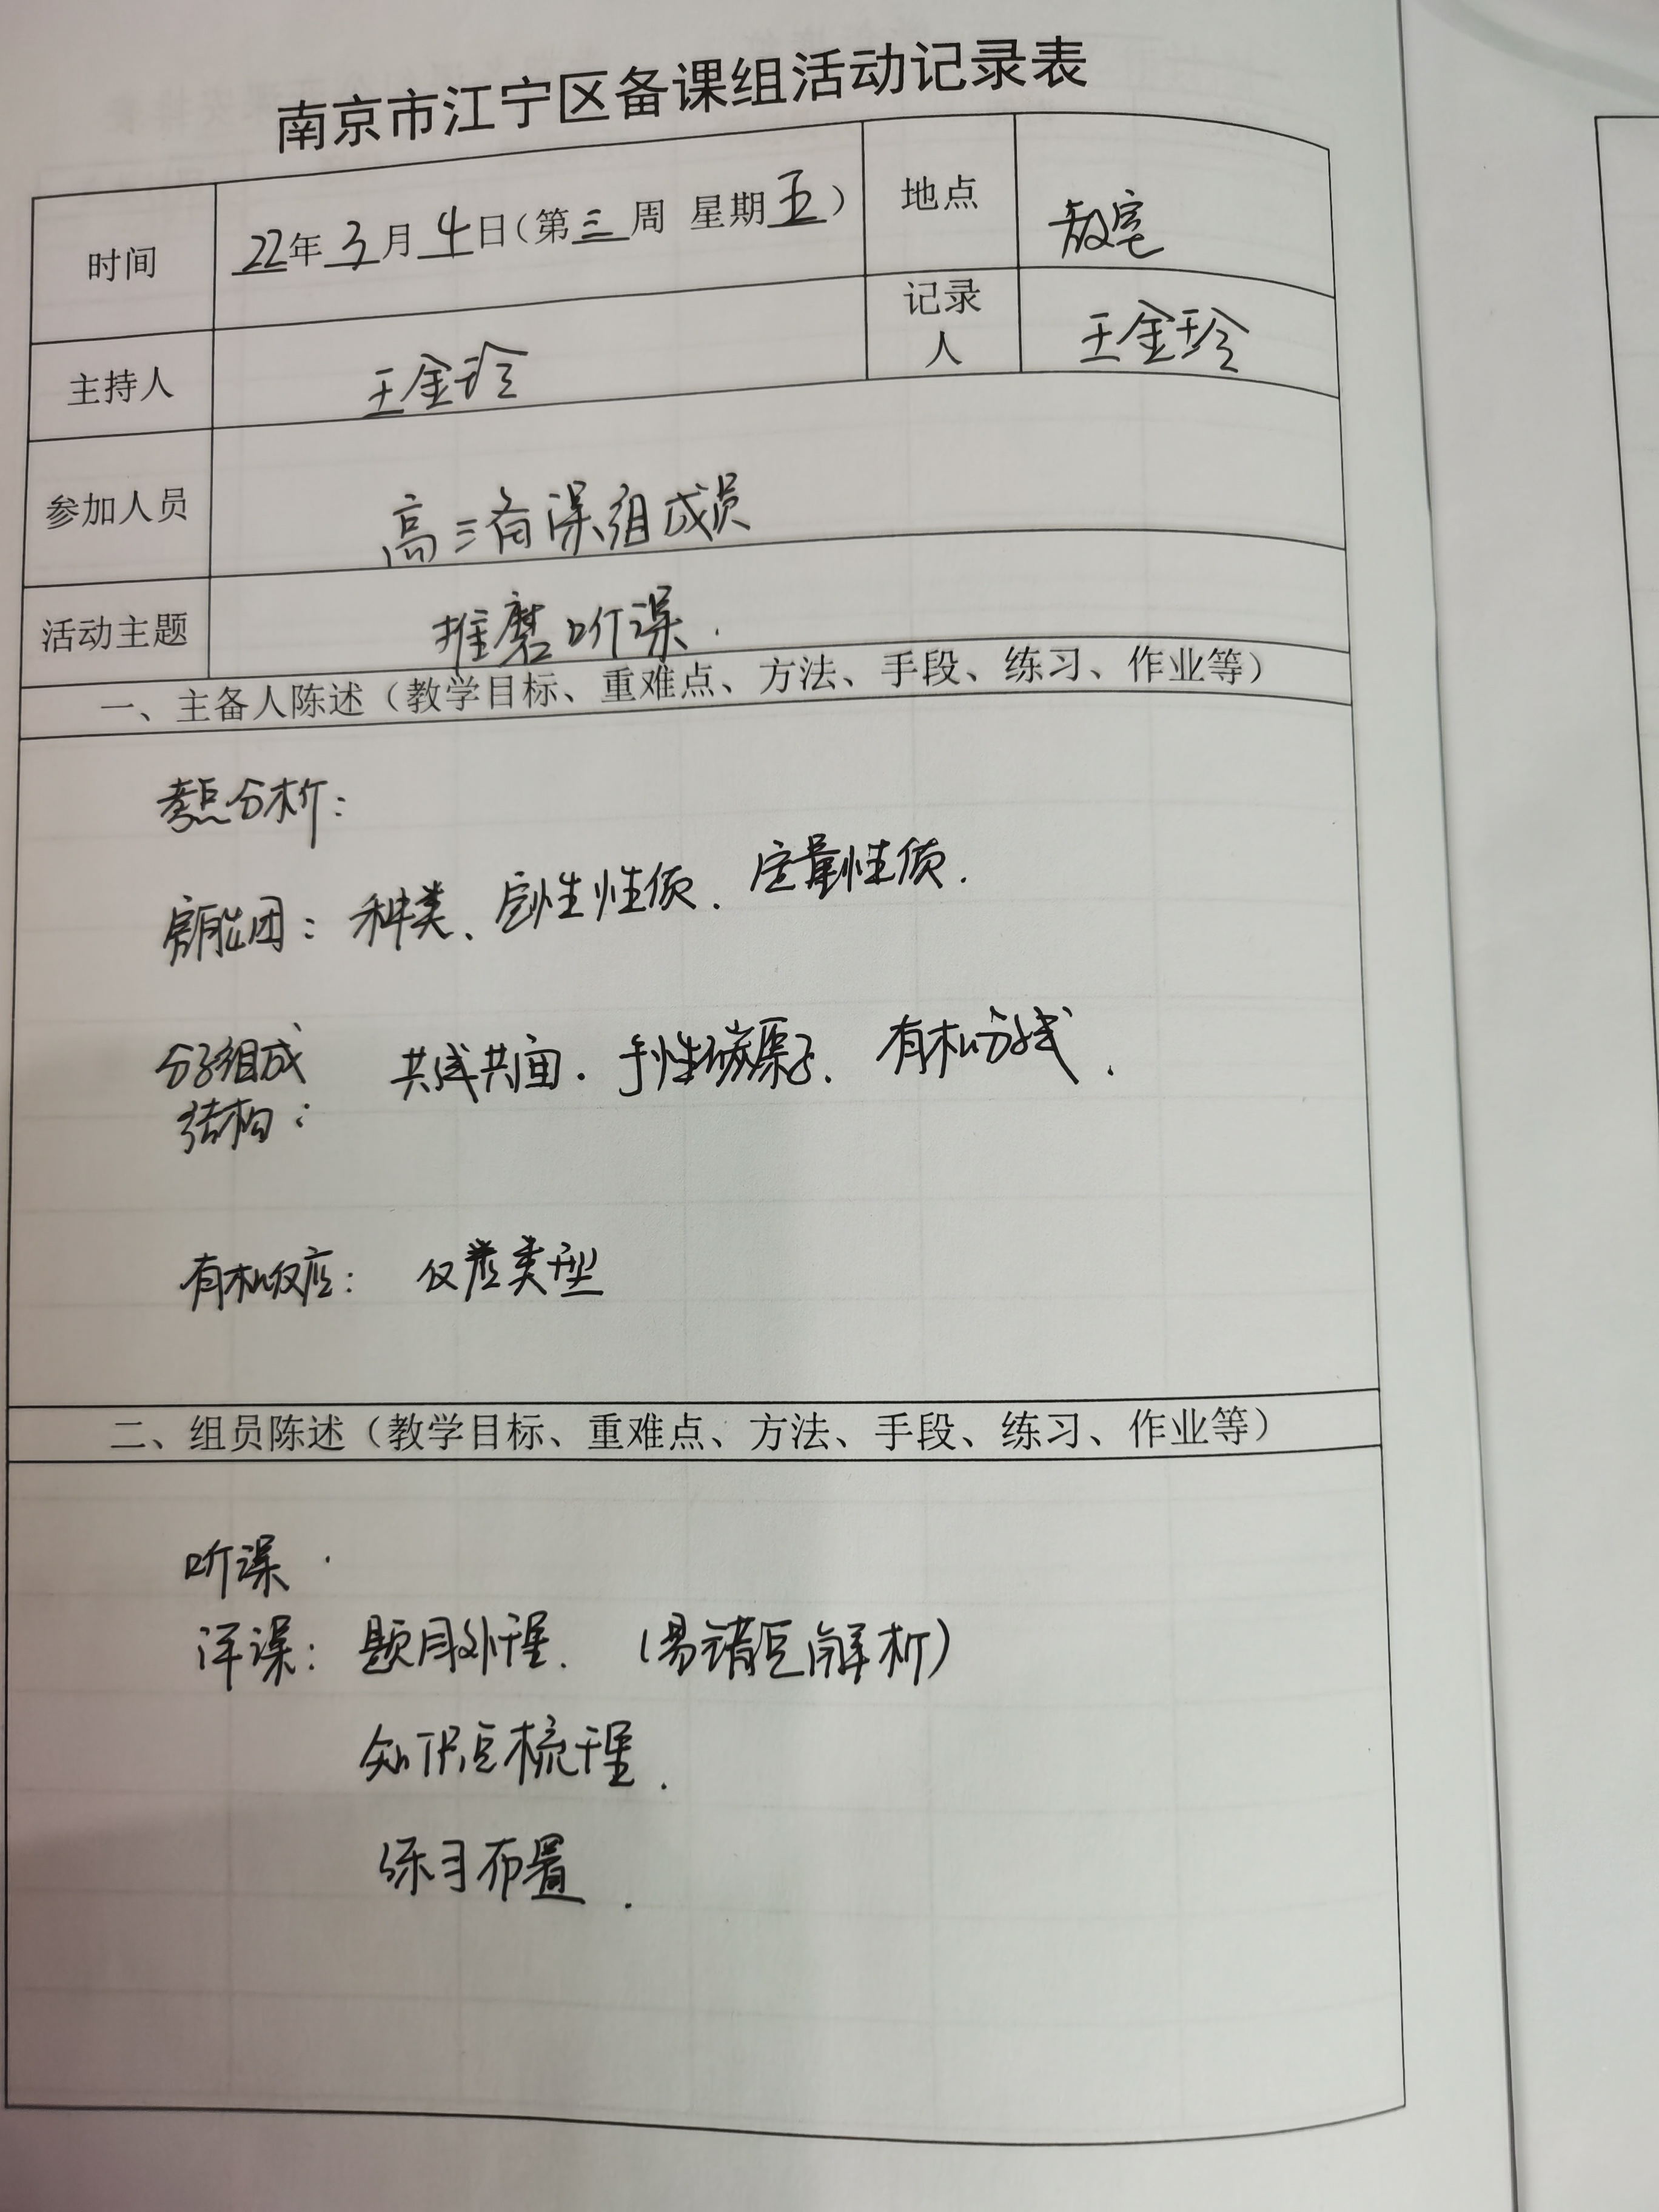 南京市江宁区备课组活动记录表
时间 22年3月4日(第三周 星期五) 地点 教室
主持人 王金玲 记录人 王金玲
参加人员 高三备课组成员
活动主题 推磨听课.
一、主备人陈述(教学目标、重难点、方法、手段、练习、作业等)
考点分析:
官能团: 种类、定性性质. 定量性质.
分子组成 共线共面. 手性碳原子. 有机分子式.
结构:
有机反应: 反应类型
二、组员陈述(教学目标、重难点、方法、手段、练习、作业等)
听课.
评课: 题目处理. (易错点解析)
知识点梳理.
练习布置.